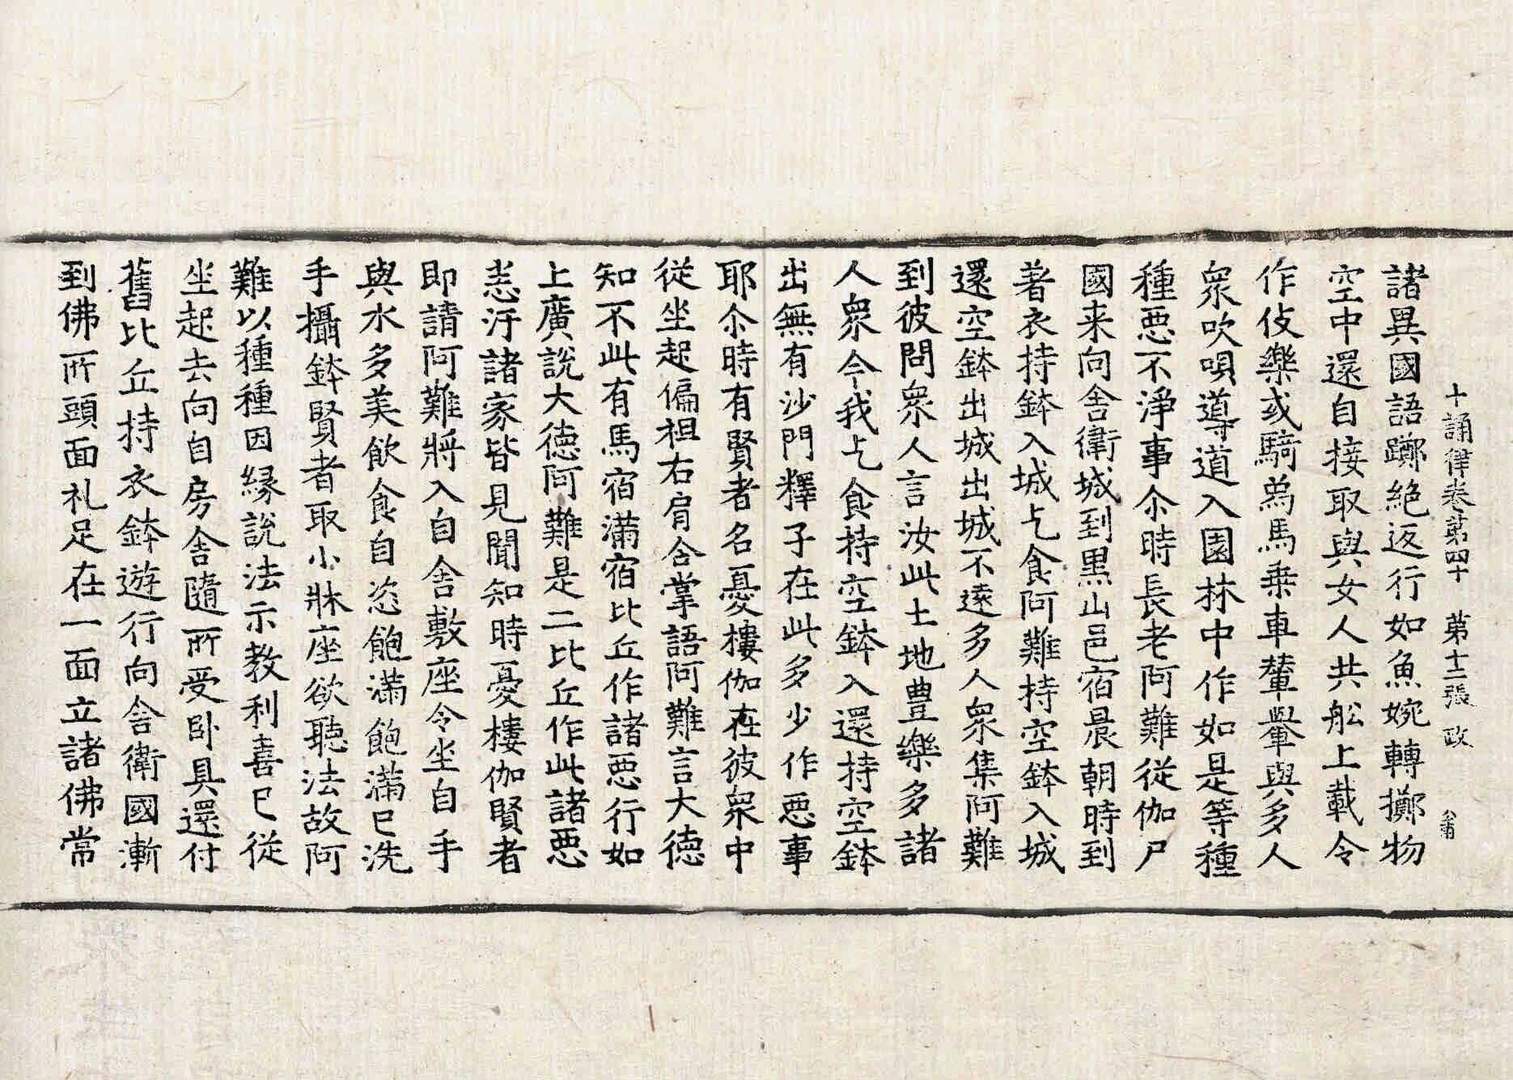 十誦律卷第四十　第十二張　政
諸異國語躑絶返行如魚婉轉擲物
空中還自接取與女人共舩上載令
作伎樂或騎爲馬乗車輦轝與多人
衆吹唄導道入園林中作如是等種
種惡不淨事尒時長老阿難從伽尸
國来向舍衛城到黒山邑宿晨朝時到
著衣持鉢入城乞食阿難持空鉢入城
還空鉢出城出城不遠多人衆集阿難
到彼問衆人言汝此土地豊樂多諸
人衆今我乞食持空鉢入還持空鉢
出無有沙門釋子在此多少作惡事
耶尒時有賢者名憂樓伽在彼衆中
從坐起偏袒右肩合掌語阿難言大德
知不此有馬宿滿宿比丘作諸惡行如
上廣說大德阿難是二比丘作此諸惡
悉汙諸家皆見聞知時憂樓伽賢者
即請阿難將入自舍敷座令坐自手
與水多美飲食自恣飽滿飽滿已洗
手攝鉢賢者取小牀座欲聽法故阿
難以種種因縁說法示教利喜已從
坐起去向自房舍隨所受卧具還付
舊比丘持衣鉢遊行向舍衛國漸
到佛所頭面礼足在一面立諸佛常